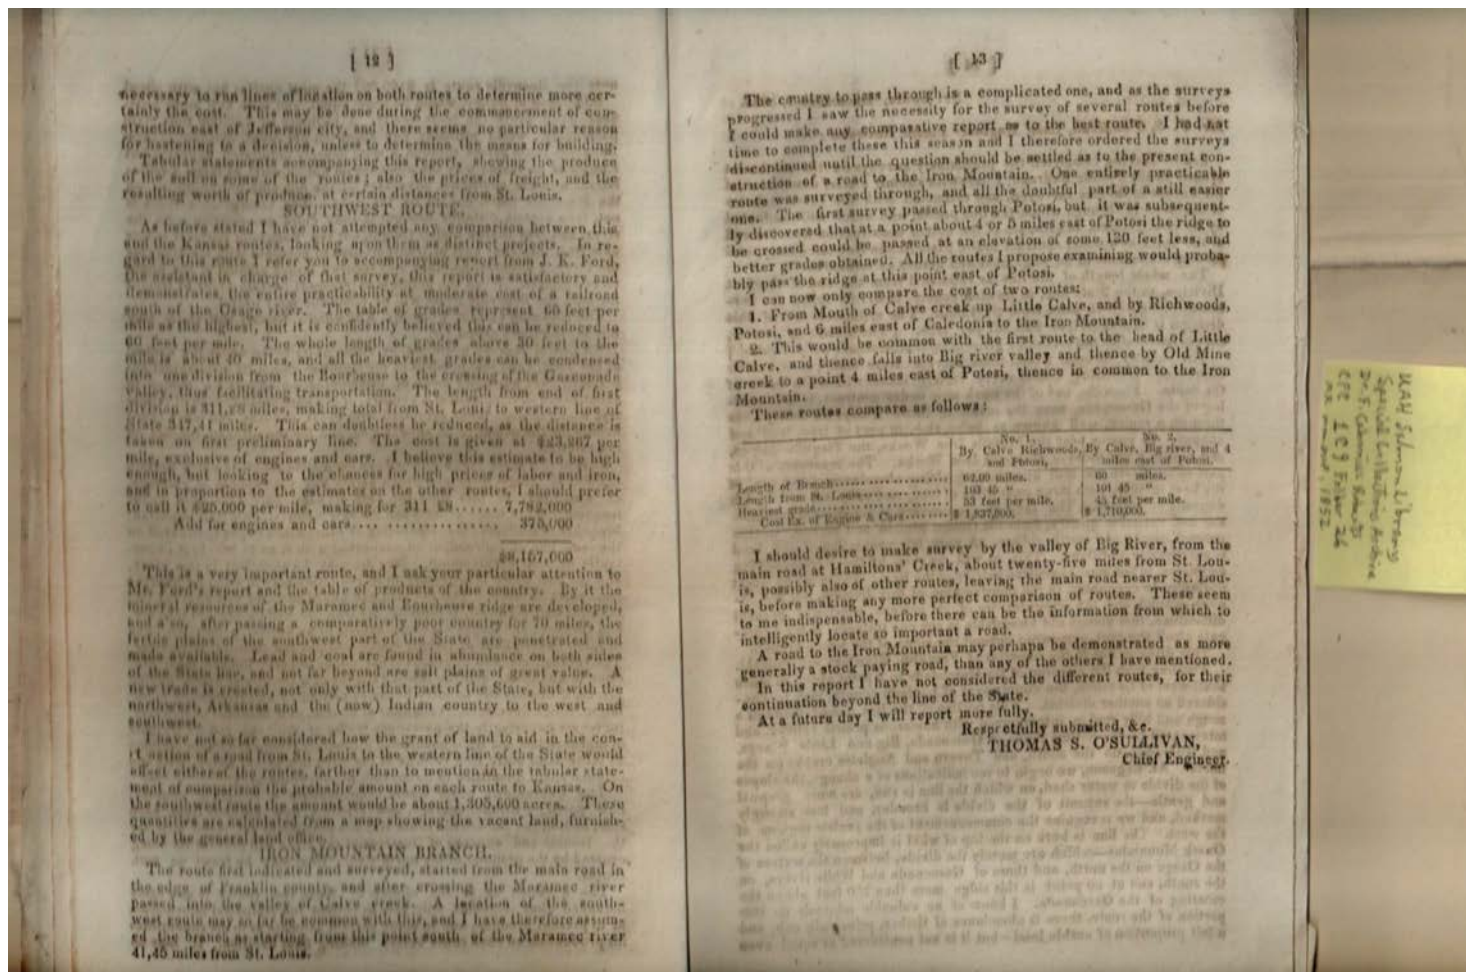 [ 12 ]
necessary to run lines of location on both routes to determine more cer-
tainly the cost. This may be done during the commencement of con-
struction east of Jefferson city, and there seems no particular reason
for hastening to a decision, unless to determine the means for building.
Tabular statements accompanying this report, showing the produce
of the soil on some of the routes; also the prices of freight, and the
resulting worth of produce, at certain distances from St. Louis.
SOUTHWEST ROUTE.
As before stated I have not attempted any comparison between this
and the Kansas routes, looking upon them as distinct projects. In re-
gard to this route I refer you to accompanying report from J. K. Ford,
the assistant in charge of that survey, this report is satisfactory and
demonstrates, the entire practicability at moderate cost of a railroad
south of the Osage river. The table of grades represent 66 feet per
mile as the highest, but it is confidently believed this can be reduced to
60 feet per mile. The whole length of grades above 30 feet to the
mile is about 40 miles, and all the heaviest grades can be condensed
into one division from the Bourbeuse to the crossing of the Gasconade
valley, thus facilitating transportation. The length from end of first
division is 311,28 miles, making total from St. Louis to western line of
State 347,41 miles. This can doubtless be reduced, as the distance is
taken on first preliminary line. The cost is given at $23,267 per
mile, exclusive of engines and cars. I believe this estimate to be high
enough, but looking to the chances for high prices of labor and iron,
and in proportion to the estimates on the other routes, I should prefer
to call it $25,000 per mile, making for 311 28...... 7,782,000
Add for engines and cars.... ............... 375,000
$8,157,000
This is a very important route, and I ask your particular attention to
Mr. Ford's report and the table of products of the country. By it the
mineral resources of the Maramec and Bourbeuse ridge are developed,
and also, after passing a comparatively poor country for 70 miles, the
fertile plains of the southwest part of the State are penetrated and
made available. Lead and coal are found in abundance on both sides
of the State line, and not far beyond are salt plains of great value. A
new trade is created, not only with that part of the State, but with the
northwest, Arkansas and the (now) Indian country to the west and
southwest.
I have not so far considered how the grant of land to aid in the con-
struction of a road from St. Louis to the western line of the State would
effect either of the routes, farther than to mention in the tabular state-
ment of comparison the probable amount on each route to Kansas. On
the southwest route the amount would be about 1,305,600 acres. These
quantities are calculated from a map showing the vacant land, furnish-
ed by the general land office.
IRON MOUNTAIN BRANCH.
The route first indicated and surveyed, started from the main road in
the edge of Franklin county, and after crossing the Maramec river
passed into the valley of Calve creek. A location of the south-
west route may so far be common with this, and I have therefore assum-
ed the branch as starting from this point south of the Maramec river
41,45 miles from St. Louis.
[ 13 ]
The country to pass through is a complicated one, and as the surveys
progressed I saw the necessity for the survey of several routes before
I could make any comparative report as to the best route. I had not
time to complete these this season and I therefore ordered the surveys
discontinued until the question should be settled as to the present con-
struction of a road to the Iron Mountain. One entirely practicable
route was surveyed through, and all the doubtful part of a still easier
one. The first survey passed through Potosi, but it was subsequent-
ly discovered that at a point about 4 or 5 miles east of Potosi the ridge to
be crossed could be passed at an elevation of some 120 feet less, and
better grades obtained. All the routes I propose examining would proba-
bly pass the ridge at this point east of Potosi.
I can now only compare the cost of two routes:
1. From Mouth of Calve creek up Little Calve, and by Richwoods,
Potosi, and 6 miles east of Caledonia to the Iron Mountain.
2. This would be common with the first route to the head of Little
Calve, and thence falls into Big river valley and thence by Old Mine
creek to a point 4 miles east of Potosi, thence in common to the Iron
Mountain.
These routes compare as follows:
No. 1. No. 2.
By Calve Richwoods, By Calve, Big river, and 4
and Potosi, miles east of Potosi.
Length of Branch 62.00 miles. 60 miles.
Length from St. Louis 103 45 " 101 45 "
Heaviest grade 53 feet per mile. 45 feet per mile.
Cost Ex. of Engine & Cars $ 1,837,000. $ 1,710,000.
I should desire to make survey by the valley of Big River, from the
main road at Hamiltons' Creek, about twenty-five miles from St. Lou-
is, possibly also of other routes, leaving the main road nearer St. Lou-
is, before making any more perfect comparison of routes. These seem
to me indispensable, before there can be the information from which to
intelligently locate so important a road.
A road to the Iron Mountain may perhaps be demonstrated as more
generally a stock paying road, than any of the others I have mentioned.
In this report I have not considered the different routes, for their
continuation beyond the line of the State.
At a future day I will report more fully.
Respectfully submitted, &c.
THOMAS S. O'SULLIVAN,
Chief Engineer.
UAH Salmon Library
Special Collections Archive
Dr. F. Catherine Roberts
1852